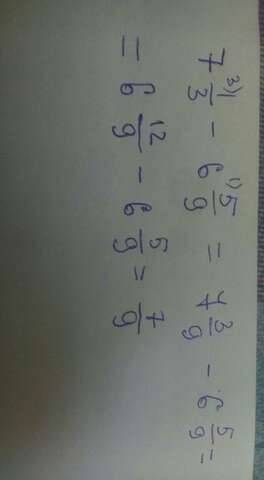 7 ³⁾1/3 - 6 ¹⁾5/9 = 7 3/9 - 6 5/9 =
= 6 12/9 - 6 5/9 = 7/9